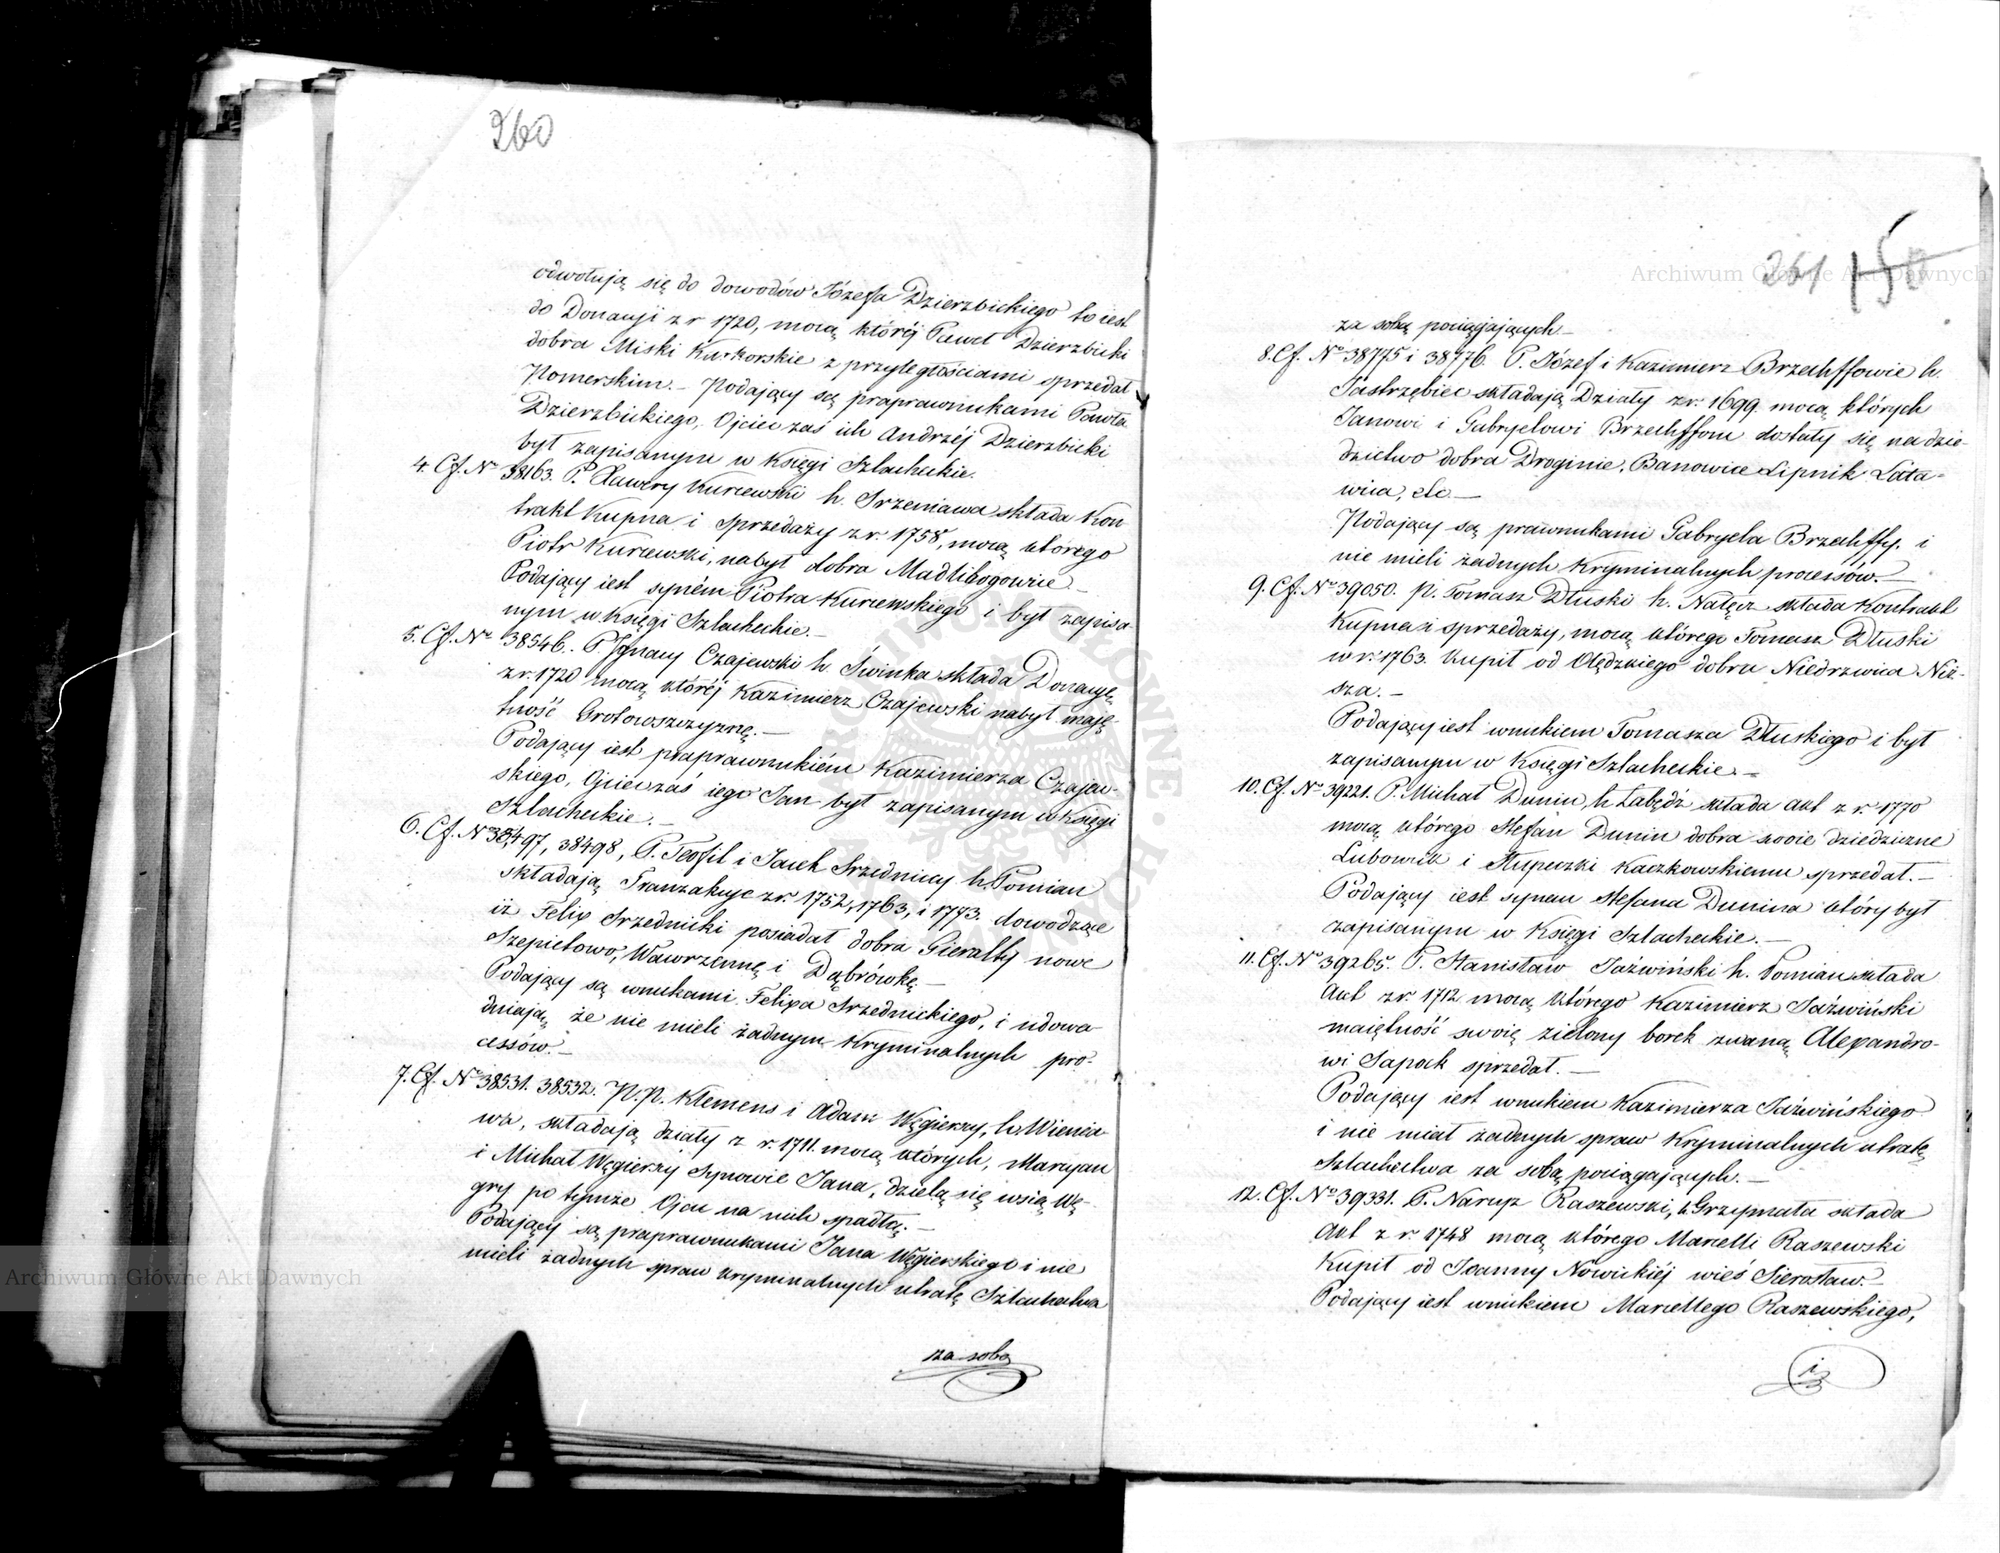 260
odwołują się do dowodów Józefa Dzierzbickiego to iest
do Donacyi z r 1720, mocą którėj Paweł Dzierzbicki
dobra Miski Kurkorskie z przyległościami sprzedał
Pomerskim. – Podający są praprawnukami Pawła
Dzierzbickiego, Ojciec zaś ich Andrzėj Dzierzbicki
był zapisanym w Księgi Szlacheckie.
4. Cf. No 38163. P. Xawery Kurcewski h. Srzeniawa składa Kon
trakt Kupna i sprzedaży z r. 1758, mocą którego
Piotr Kurcewski, nabył dobra Madlibogowice –
Podający iest synėm Piotra Kurcewskiego i był zapisa
nym w Księgi Szlacheckie. –
5. Cf. No 38546. P. Ignacy Czajewski h. Świnka składa Donacyę
z r. 1720 mocą którėj Kazimierz Czajewski nabył mają-
tność Grotowszczyznę. –
Podający iest praprawnukiėm Kazimierza Czajew-
skiego, Ojciec zaś iego Jan był zapisanym w Księgi
Szlacheckie. –
6. Cf. No 38497, 38498, P. Teofil i Jacek Srzedniccy h. Pomian
składają Tranzakcye z r. 1752, 1763, i 1773. dowodzące
iż Felix Srzednicki posiadał dobra Gierałty nowe
Szepietowo, Wawrzennę i Dąbrówkę –
Podający są wnukami Felixa Srzednickiego, i udowa
dniają że nie mieli żadnym Kryminalnych pro
cessów. –
7. Cf. No 38531. 38532. P. P. Klemens i Adam Węgierscy, h. Wienia
wa, składają działy z r. 1711. mocą których, Marcyan
i Michał Węgierscy Synowie Jana, dzielą się wsią Wę-
gry po tymże Ojcu na nich spadłą. –
Podający są praprawnukami Jana Węgierskiego i nie
mieli żadnych spraw kryminalnych utratę Szlachectwa
za sobą
261 150
za sobą pociągających –
8. Cf. No 38775 i 38776. P. Józef i Kazimierz Brzechffowie h.
Jastrzębiec składają Działy z r. 1699. mocą których
Janowi i Gabryelowi Brzechffom dostały się na dzie-
dzictwo dobra Droginie, Banowice Lipnik Lata-
wica, etc. –
Podający są prawnukami Gabryela Brzechffy. i
nie mieli żadnych Kryminalnych processów. –
9. Cf. No 39050. P. Tomasz Dłuski h. Nałęcz składa Kontrakt
Kupna i sprzedaży, mocą którego Tomasz Dłuski
w r. 1763. Kupił od Olędzkiego dobra Niedrzwica Niż-
sza. –
Podający iest wnukiem Tomasza Dłuskiego i był
zapisanym w Księgi Szlacheckie –
10. Cf. No 39221. P. Michał Dunin h. Łabędź składa akt z r. 1770
mocą którego Stefan Dunin dobra swoie dziedziczne
Lubowiek i Słupeczki Kaczkowskiemu sprzedał. –
Podający iest synem Stefana Dunina który był
zapisanym w Księgi Szlacheckie. –
11. Cf. No 39265. P. Stanisław Jaźwiński h. Pomian składa
Akt z r. 1712 mocą którego Kazimierz Jaźwiński
maiętność swoię zielony borek zwaną Alexandro-
wi Sapock sprzedał. –
Podający iest wnukiem Kazimierza Jaźwińskiego
i nie miał żadnych spraw Kryminalnych utratę
Szlachectwa za sobą pociągających. –
12. Cf. No 39331. P. Narcyz Raszewski, h. Grzymała składa
Akt z r. 1748 mocą którego Marcelli Raszewski
Kupił od Joanny Nowickiėj wieś Sierosław. –
Podający iest wnukiem Marcellego Raszewskiego,
i
Archiwum Główne Akt Dawnych
Archiwum Główne Akt Dawnych